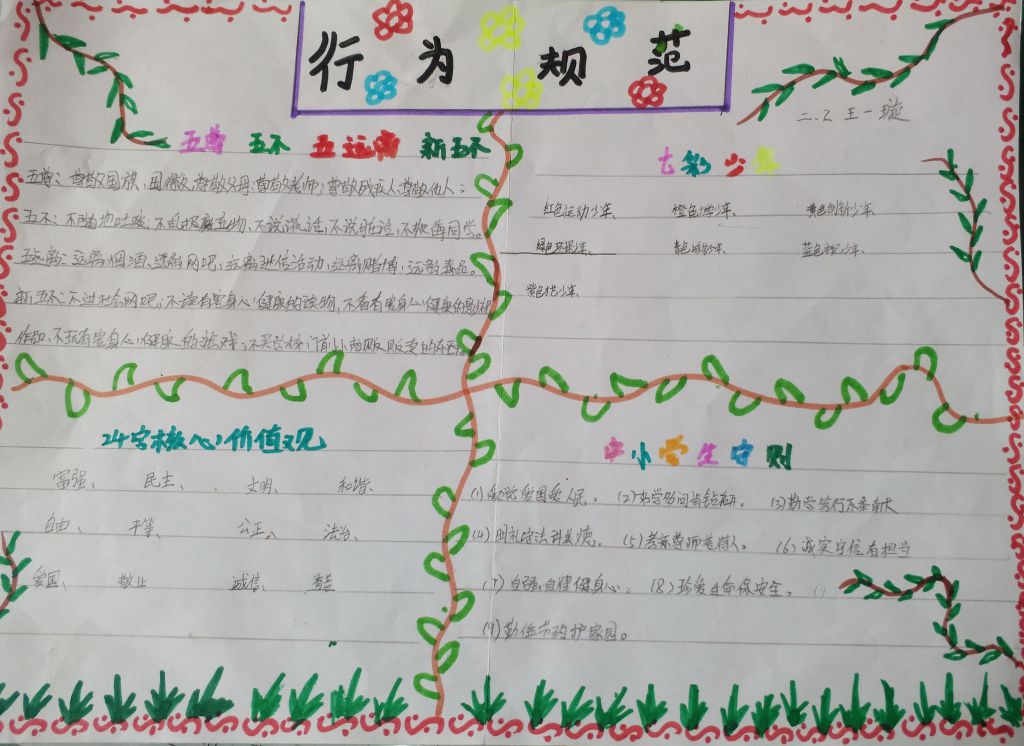 行为规范
二、2 王一璇
五尊 五不 五远离 新五不
五尊：尊敬国旗，国徽，尊敬父母，尊敬老师，尊敬残疾人，尊敬他人：
五不：不随地吐痰，不乱扔废弃物，不说谎话，不说脏话，不欺侮同学。
五远离：远离烟酒，远离网吧，远离迷信活动，远离赌博，远离毒品。
新五不：不进社会网吧，不读有害身心健康的读物，不看有害身心健康的影视
作品，不玩有害身心健康的游戏，不买学校门前小商贩贩卖的东西。
七彩少年
红色运动少年、 橙色 少年、 黄色创新少年、
绿色环保少年、 青色 少年、 蓝色 少年、
紫色 少年、
24字核心价值观
富强、 民主、 文明、 和谐、
自由、 平等、 公正、 法治、
爱国、 敬业 诚信、 友善
中小学生守则
(1) 爱党爱国爱人民。 (2) 好学多问肯钻研。 (3) 勤学笃行乐奉献
(4) 明礼守法讲美德。 (5) 孝亲尊师善待人。 (6) 诚实守信有担当
(7) 自强自律健身心。 (8) 珍爱生命保安全。
(9) 勤俭节约护家园。